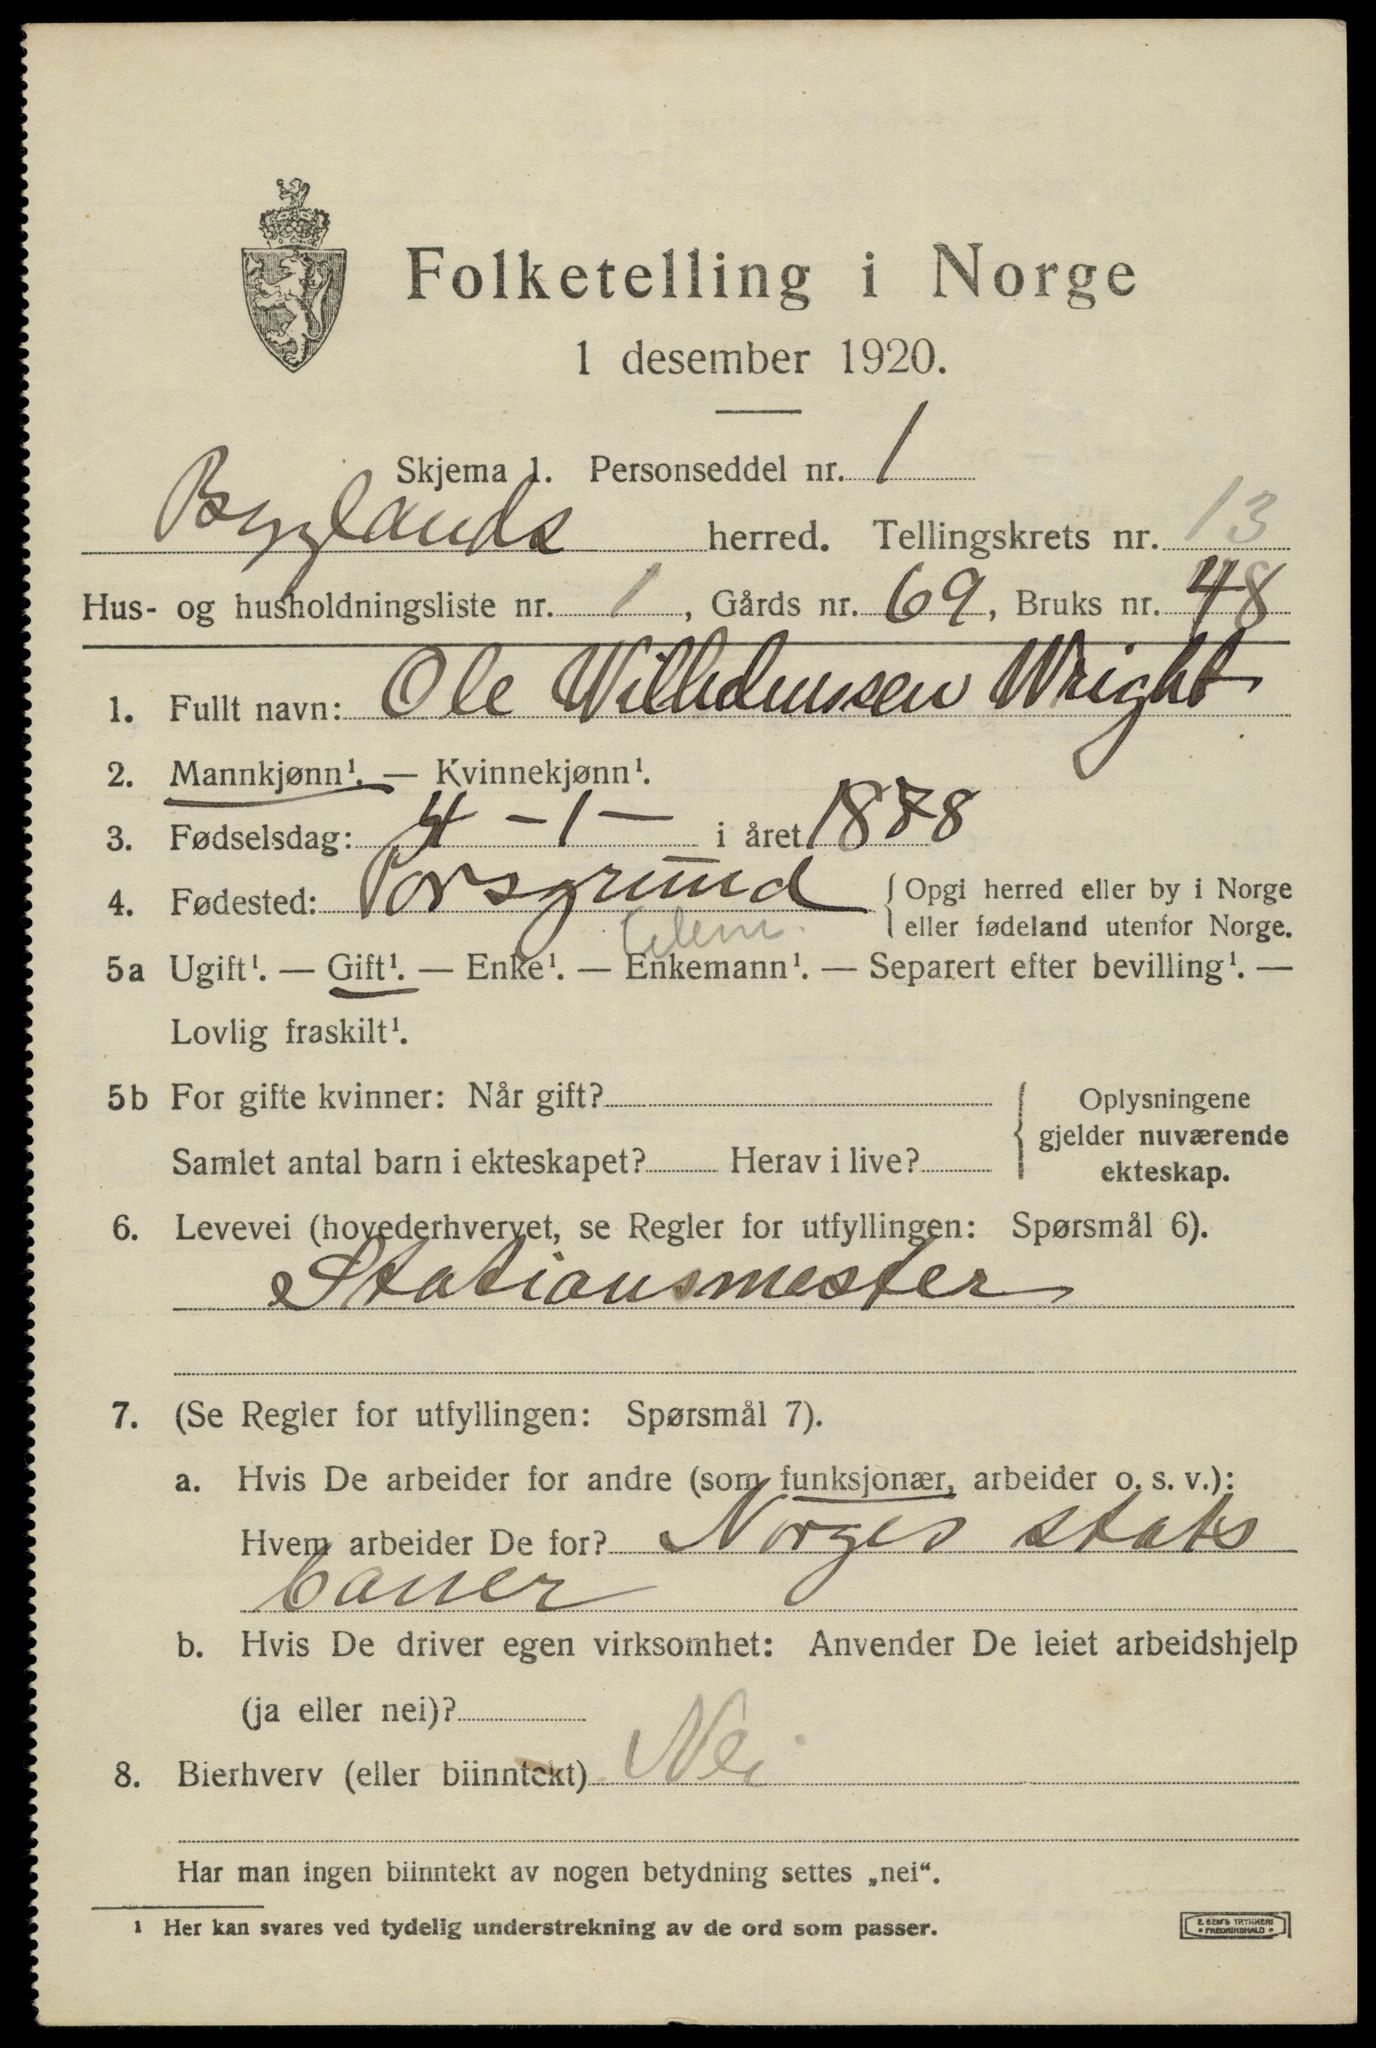 Folketelling i Norge
1 desember 1920.
Skjema 1. Personseddel nr. 1
Byglands herred. Tellingskrets nr. 13
Hus- og husholdningsliste nr. 1, Gårds nr. 69, Bruks nr. 48
1. Fullt navn: Ole Wilhelmssen Wright
2. Mannkjønn¹. — Kvinnekjønn¹.
3. Fødselsdag: 4 - 1 - i året 1878
4. Fødested: Porsgrund { Opgi herred eller by i Norge
eller fødeland utenfor Norge.
5a Ugift¹. — Gift¹. — Enke¹. — Enkemann¹. — Separert efter bevilling¹. —
Lovlig fraskilt¹.
5b For gifte kvinner: Når gift? { Oplysningene
gjelder nuværende
Samlet antal barn i ekteskapet? Herav i live?
ekteskap.
6. Levevei (hovederhvervet, se Regler for utfyllingen: Spørsmål 6).
Stationsmester
7. (Se Regler for utfyllingen: Spørsmål 7).
a. Hvis De arbeider for andre (som funksjonær, arbeider o. s. v.):
Hvem arbeider De for? Norges stats
baner
b. Hvis De driver egen virksomhet: Anvender De leiet arbeidshjelp
(ja eller nei)?
8. Bierhverv (eller biinntekt) Nei
Har man ingen biinntekt av nogen betydning settes „nei“.
¹ Her kan svares ved tydelig understrekning av de ord som passer.
E. SEM'S TRYKKERI
• FREDRIKSHALD •